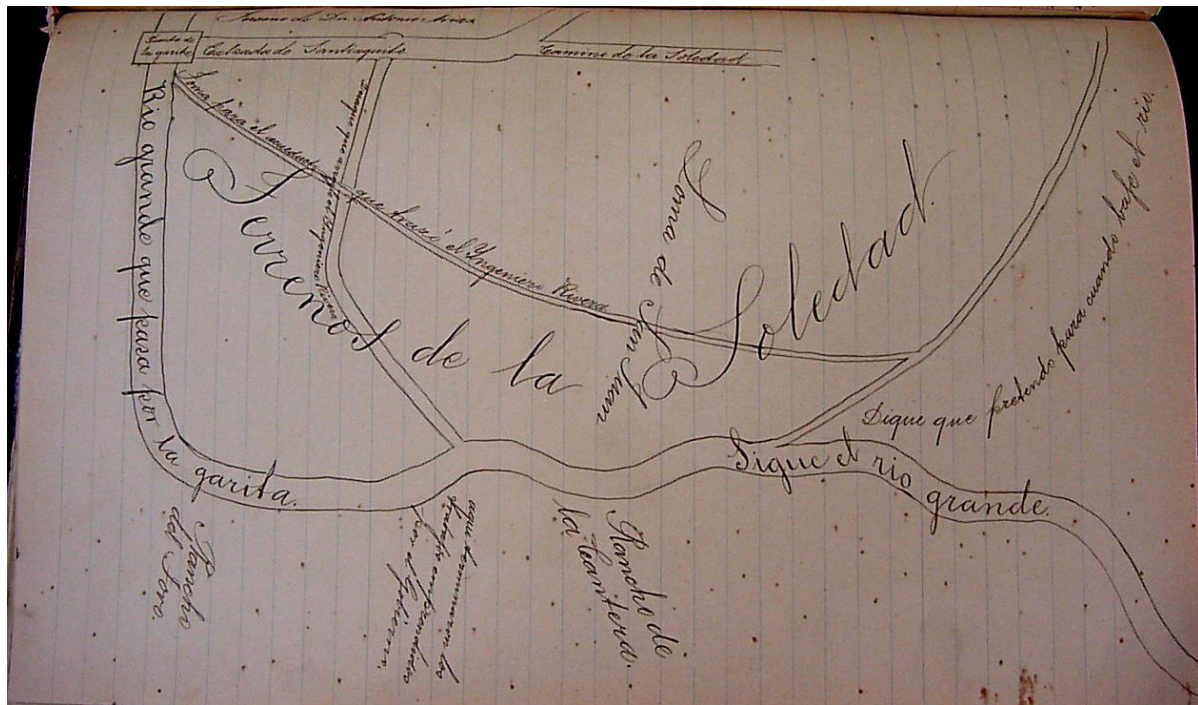 Terreno de Dn. Antonio
Puente de
la garita
Calzada de Santiaguito
Camino de la Soledad
Rio grande que pasa por la garita.
Loma para el que trazó el Ingeniero Rivera
Dique que el Yngeniero Rivera
Terrenos de la Soledad.
Loma de San Juan
Dique que pretendo para cuando baje el rio.
Sigue el rio grande.
Rancho
del Toro.
aqui terminaron los
trabajos emprendidos
por el Gobierno.
Rancho de
la Cantera.